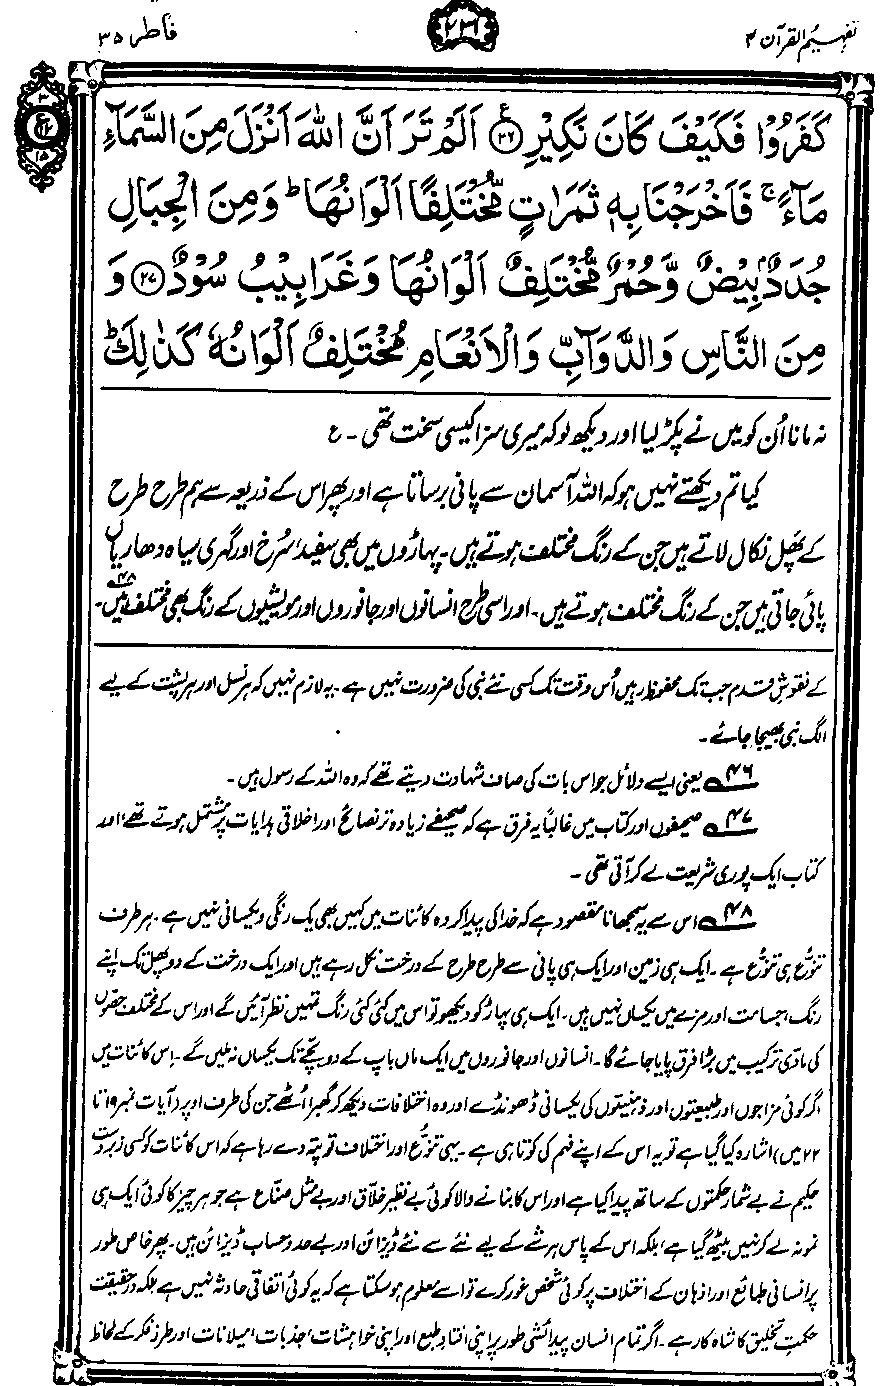 تفہیم القرآن ۴
۲۳۱
فاطر ۳۵
كَفَرُوْا فَكَيْفَ كَانَ نَكِيْرِ ﴿۲۶﴾ اَلَمْ تَرَ اَنَّ اللّٰهَ اَنْزَلَ مِنَ السَّمَآءِ
مَآءً ۚ فَاَخْرَجْنَا بِهٖ ثَمَرٰتٍ مُّخْتَلِفًا اَلْوَانُهَا ؕ وَمِنَ الْجِبَالِ
جُدَدٌۢ بِيْضٌ وَّحُمْرٌ مُّخْتَلِفٌ اَلْوَانُهَا وَغَرَابِيْبُ سُوْدٌ ﴿۲۷﴾ وَ
مِنَ النَّاسِ وَالدَّوَآبِّ وَالْاَنْعَامِ مُخْتَلِفٌ اَلْوَانُهٗ كَذٰلِكَ ؕ
نہ مانا اُن کو میں نے پکڑ لیا اور دیکھ لو کہ میری سزا کیسی سخت تھی ۔ ع
کیا تم دیکھتے نہیں ہو کہ اللہ آسمان سے پانی برساتا ہے اور پھر اس کے ذریعہ سے ہم طرح طرح
کے پھل نکال لاتے ہیں جن کے رنگ مختلف ہوتے ہیں۔ پہاڑوں میں بھی سفید، سُرخ اور گہری سیاہ دھاریاں
پائی جاتی ہیں جن کے رنگ مختلف ہوتے ہیں۔ اور اسی طرح انسانوں اور جانوروں اور مویشیوں کے رنگ بھی مختلف ہیں۴۸۔
کے نقوشِ قدم جب تک محفوظ رہیں اُس وقت تک کسی نئے نبی کی ضرورت نہیں ہے۔ یہ لازم نہیں کہ ہر نسل اور ہر پشت کے لیے
الگ نبی بھیجا جائے۔
۴۶ یعنی ایسے دلائل جو اس بات کی صاف شہادت دیتے تھے کہ وہ اللہ کے رسول ہیں۔
۴۷ صحیفوں اور کتاب میں غالباً یہ فرق ہے کہ صحیفے زیادہ تر نصائح اور اخلاقی ہدایات پر مشتمل ہوتے تھے، اور
کتاب ایک پوری شریعت لے کر آتی تھی۔
۴۸ اس سے یہ سمجھانا مقصود ہے کہ خدا کی پیدا کردہ کائنات میں کہیں بھی یک رنگی و یکسانی نہیں ہے۔ ہر طرف
تنوُّع ہی تنوُّع ہے۔ ایک ہی زمین اور ایک ہی پانی سے طرح طرح کے درخت نکل رہے ہیں اور ایک درخت کے دو پھل تک اپنے
رنگ، جسامت اور مزے میں یکساں نہیں ہیں۔ ایک ہی پہاڑ کو دیکھو تو اس میں کئی کئی رنگ تمہیں نظر آئیں گے اور اس کے مختلف حصوں
کی مادّی ترکیب میں بڑا فرق پایا جائے گا۔ انسانوں اور جانوروں میں ایک ماں باپ کے دو بچے تک یکساں نہ ملیں گے۔ اِس کائنات میں
اگر کوئی مزاجوں اور طبیعتوں اور ذہنیتوں کی یکسانی ڈھونڈے اور وہ اختلافات دیکھ کر گھبرا اُٹھے جن کی طرف اوپر (آیات نمبر ۱۹ تا
۲۲ میں) اشارہ کیا گیا ہے تو یہ اس کے اپنے فہم کی کوتاہی ہے۔ یہی تنوُّع اور اختلاف تو پتہ دے رہا ہے کہ اس کائنات کو کسی زبردست
حکیم نے بے شمار حکمتوں کے ساتھ پیدا کیا ہے اور اس کا بنانے والا کوئی بے نظیر خلّاق اور بے مثل صنّاع ہے جو ہر چیز کا کوئی ایک ہی
نمونہ لے کر نہیں بیٹھ گیا ہے، بلکہ اس کے پاس ہر شے کے لیے نئے سے نئے ڈیزائن اور بے حد و حساب ڈیزائن ہیں۔ پھر خاص طور
پر انسانی طبائع اور اذہان کے اختلاف پر کوئی شخص غور کرے تو اسے معلوم ہو سکتا ہے کہ یہ کوئی اتفاقی حادثہ نہیں ہے بلکہ درحقیقت
حکمتِ تخلیق کا شاہکار ہے۔ اگر تمام انسان پیدائشی طور پر اپنی افتادِ طبع اور اپنی خواہشات، جذبات، میلانات اور طرزِ فکر کے لحاظ